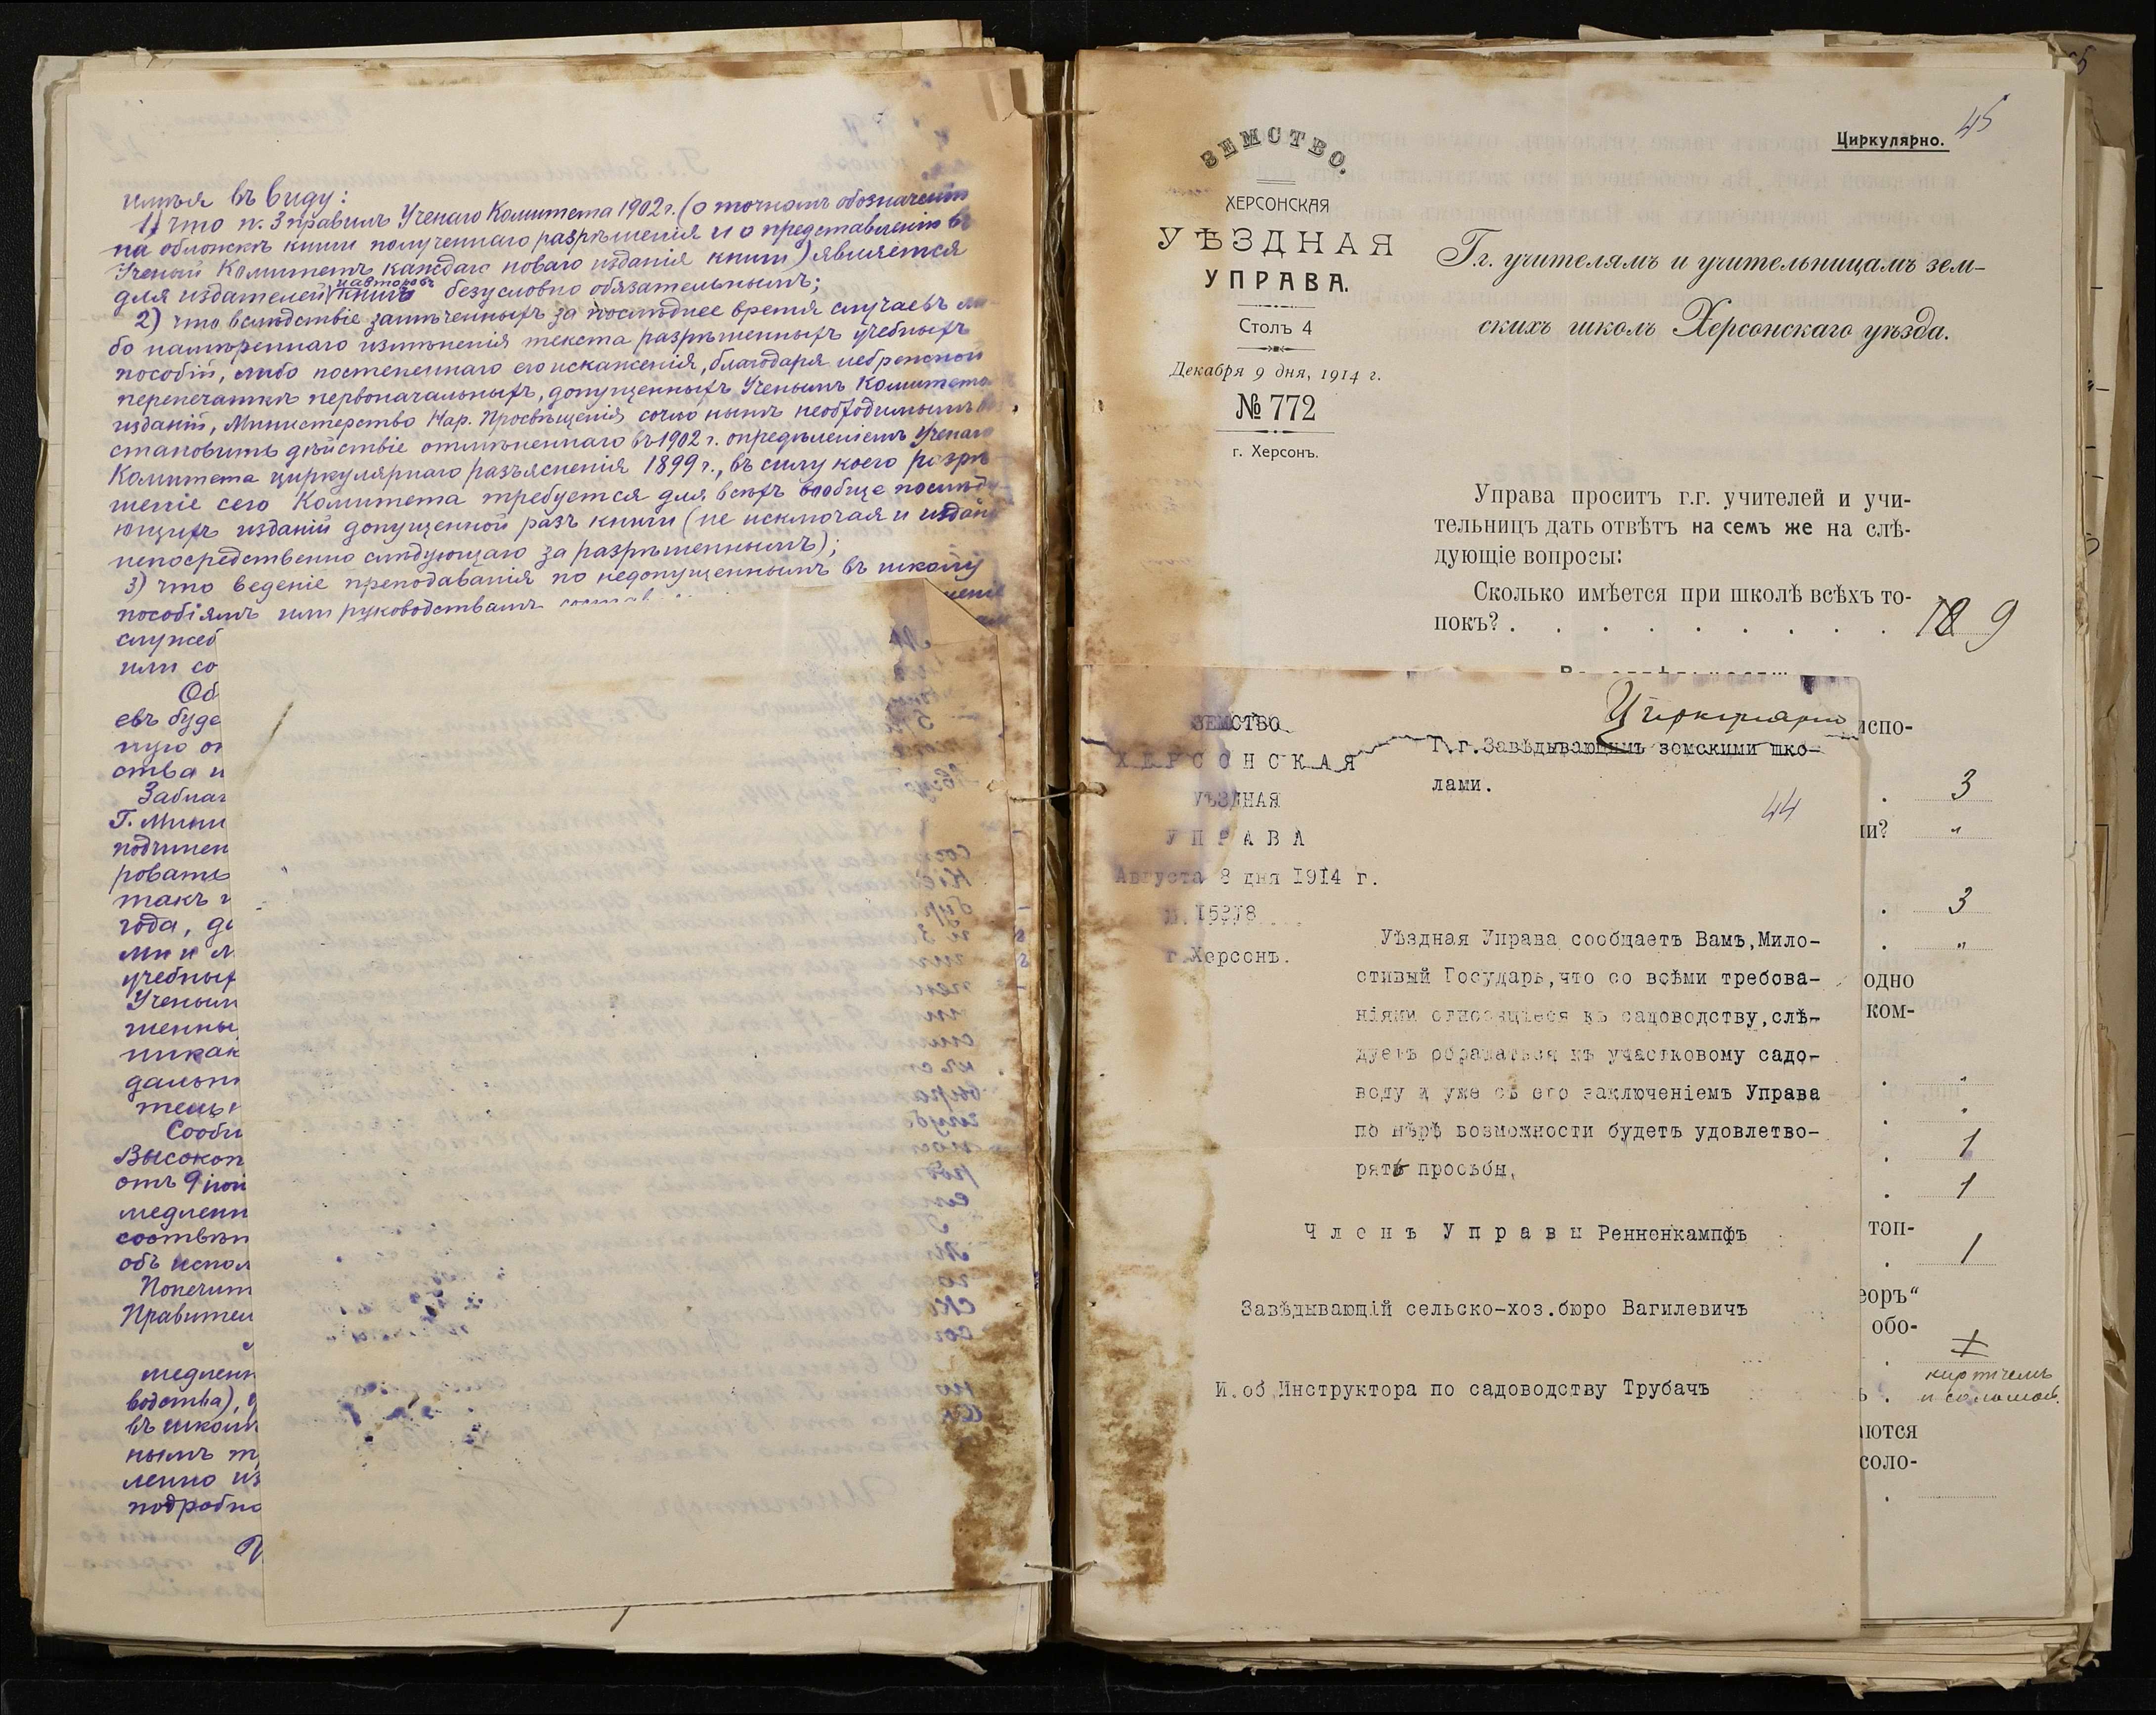 имѣя въ виду:
1) что п. 3 правилъ Ученаго Комитета 1902 г. (о точномъ обозначеніи
на обложкѣ книги полученнаго разрѣшенія и о представленіи въ
Ученый Комитетъ каждаго новаго изданія книги) является
и авторовъ
для издателей книгъ безусловно обязательнымъ;
2) что вслѣдствіе замѣченныхъ за послѣднее время случаевъ ли-
бо намѣреннаго измѣненія текста разрѣшенныхъ учебныхъ
пособій, либо постепеннаго его искаженія, благодаря небрежной
перепечаткѣ первоначальныхъ, допущенныхъ Ученымъ Комитето
изданій, Министерство Нар. Просвѣщенія сочло нынѣ необходимымъ
становить дѣйствіе отмѣненнаго въ 1902 г. опредѣленіемъ Ученаго
Комитета циркулярнаго разъясненія 1899 г., въ силу коего разрѣ
шеніе сего Комитета требуется для всѣхъ вообще послѣду-
ющихъ изданій допущенной разъ книги (не исключая и издані
непосредственно слѣдующаго за разрѣшеннымъ);
3) что веденіе преподаванія по недопущеннымъ въ школу
пособіямъ или руководствамъ состав
служеб
или со
Об
евъ буде
ную от
ства и
Заблаг
Г. Мини
подчинен
ровать
такъ
года, де
ми и м
учебных
Ученым
шенны
никак
дальн
тель
Сообщ
Высокоп
отъ 9 іюн
медленн
соотвѣт
объ испол
Попечит
Правител
медленн
водства),
въ школ
нымъ т
ленно из
подробно
45
Циркулярно.
ЗЕМСТВО.
ХЕРСОНСКАЯ
УѢЗДНАЯ
УПРАВА.
Столъ 4
Декабря 9 дня, 1914 г.
№ 772
г. Херсонъ.
Г.г. учителямъ и учительницамъ зем-
скихъ школъ Херсонскаго уѣзда.
Управа проситъ г.г. учителей и учи-
тельницъ дать отвѣтъ на семъ же на слѣ-
дующіе вопросы:
Сколько имѣется при школѣ всѣхъ то-
покъ? . . . . . . . . . 9
испо-
. 3
ли? "
. 3
. "
одно
ком-
. "
. "
. 1
. 1
топ-
. 1
еоръ"
обо-
.
кирпичемъ
ъ . и соломой.
аются
соло-
.
Циркулярно
ЗЕМСТВО
ХЕРСОНСКАЯ
УѢЗДНАЯ
УПРАВА
Августа 8 дня 1914 г.
г. Херсонъ.
Г.г. Завѣдывающимъ земскими шко-
лами.
44
Уѣздная Управа сообщаетъ Вамъ, Мило-
стивый Государь, что со всѣми требова-
ніями относящіеся къ садоводству, слѣ-
дуетъ обращаться къ участковому садо-
воду и уже съ его заключеніемъ Управа
по мѣрѣ возможности будетъ удовлетво-
рять просьбы.
Членъ Управы Ренненкампфъ
Завѣдывающій сельско-хоз. бюро Вагилевичъ
И. об. Инструктора по садоводству Трубачъ